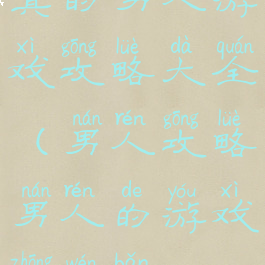 真的男人游
xì gōng lüè dà quán
戏攻略大全
nán rén gōng lüè
(男人攻略
nán rén de yóu xì
男人的游戏
zhōng wén bǎn